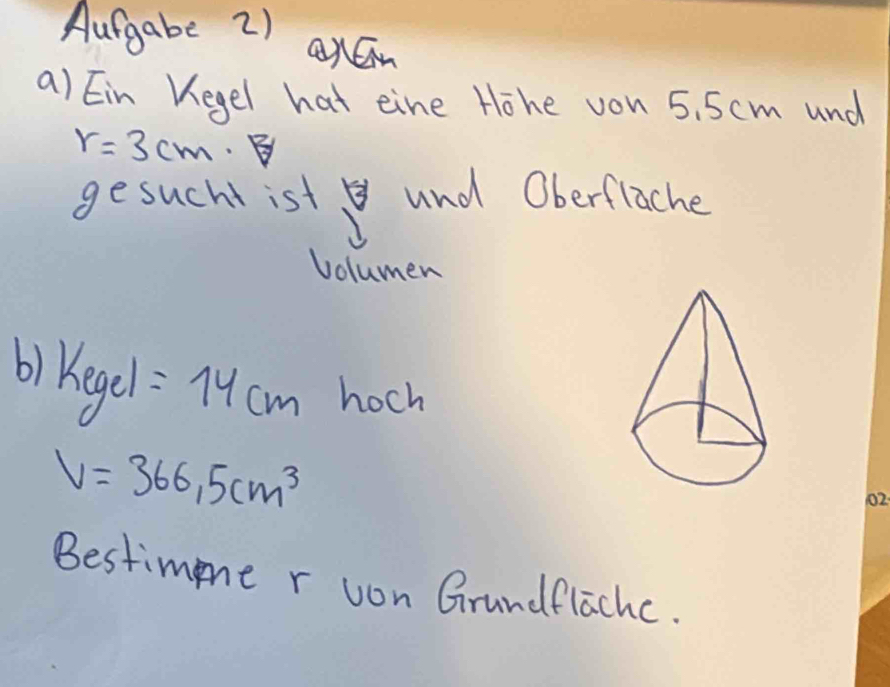 Aufgabe 2)
a) Ein
a) Ein Kegel hat eine Höhe von 5,5cm und
r=3cm.
gesucht ist und Oberfläche
Volumen
b) Kegel = 14cm hoch
V= 366,5cm³
Bestimme r von Grundfläche.
02